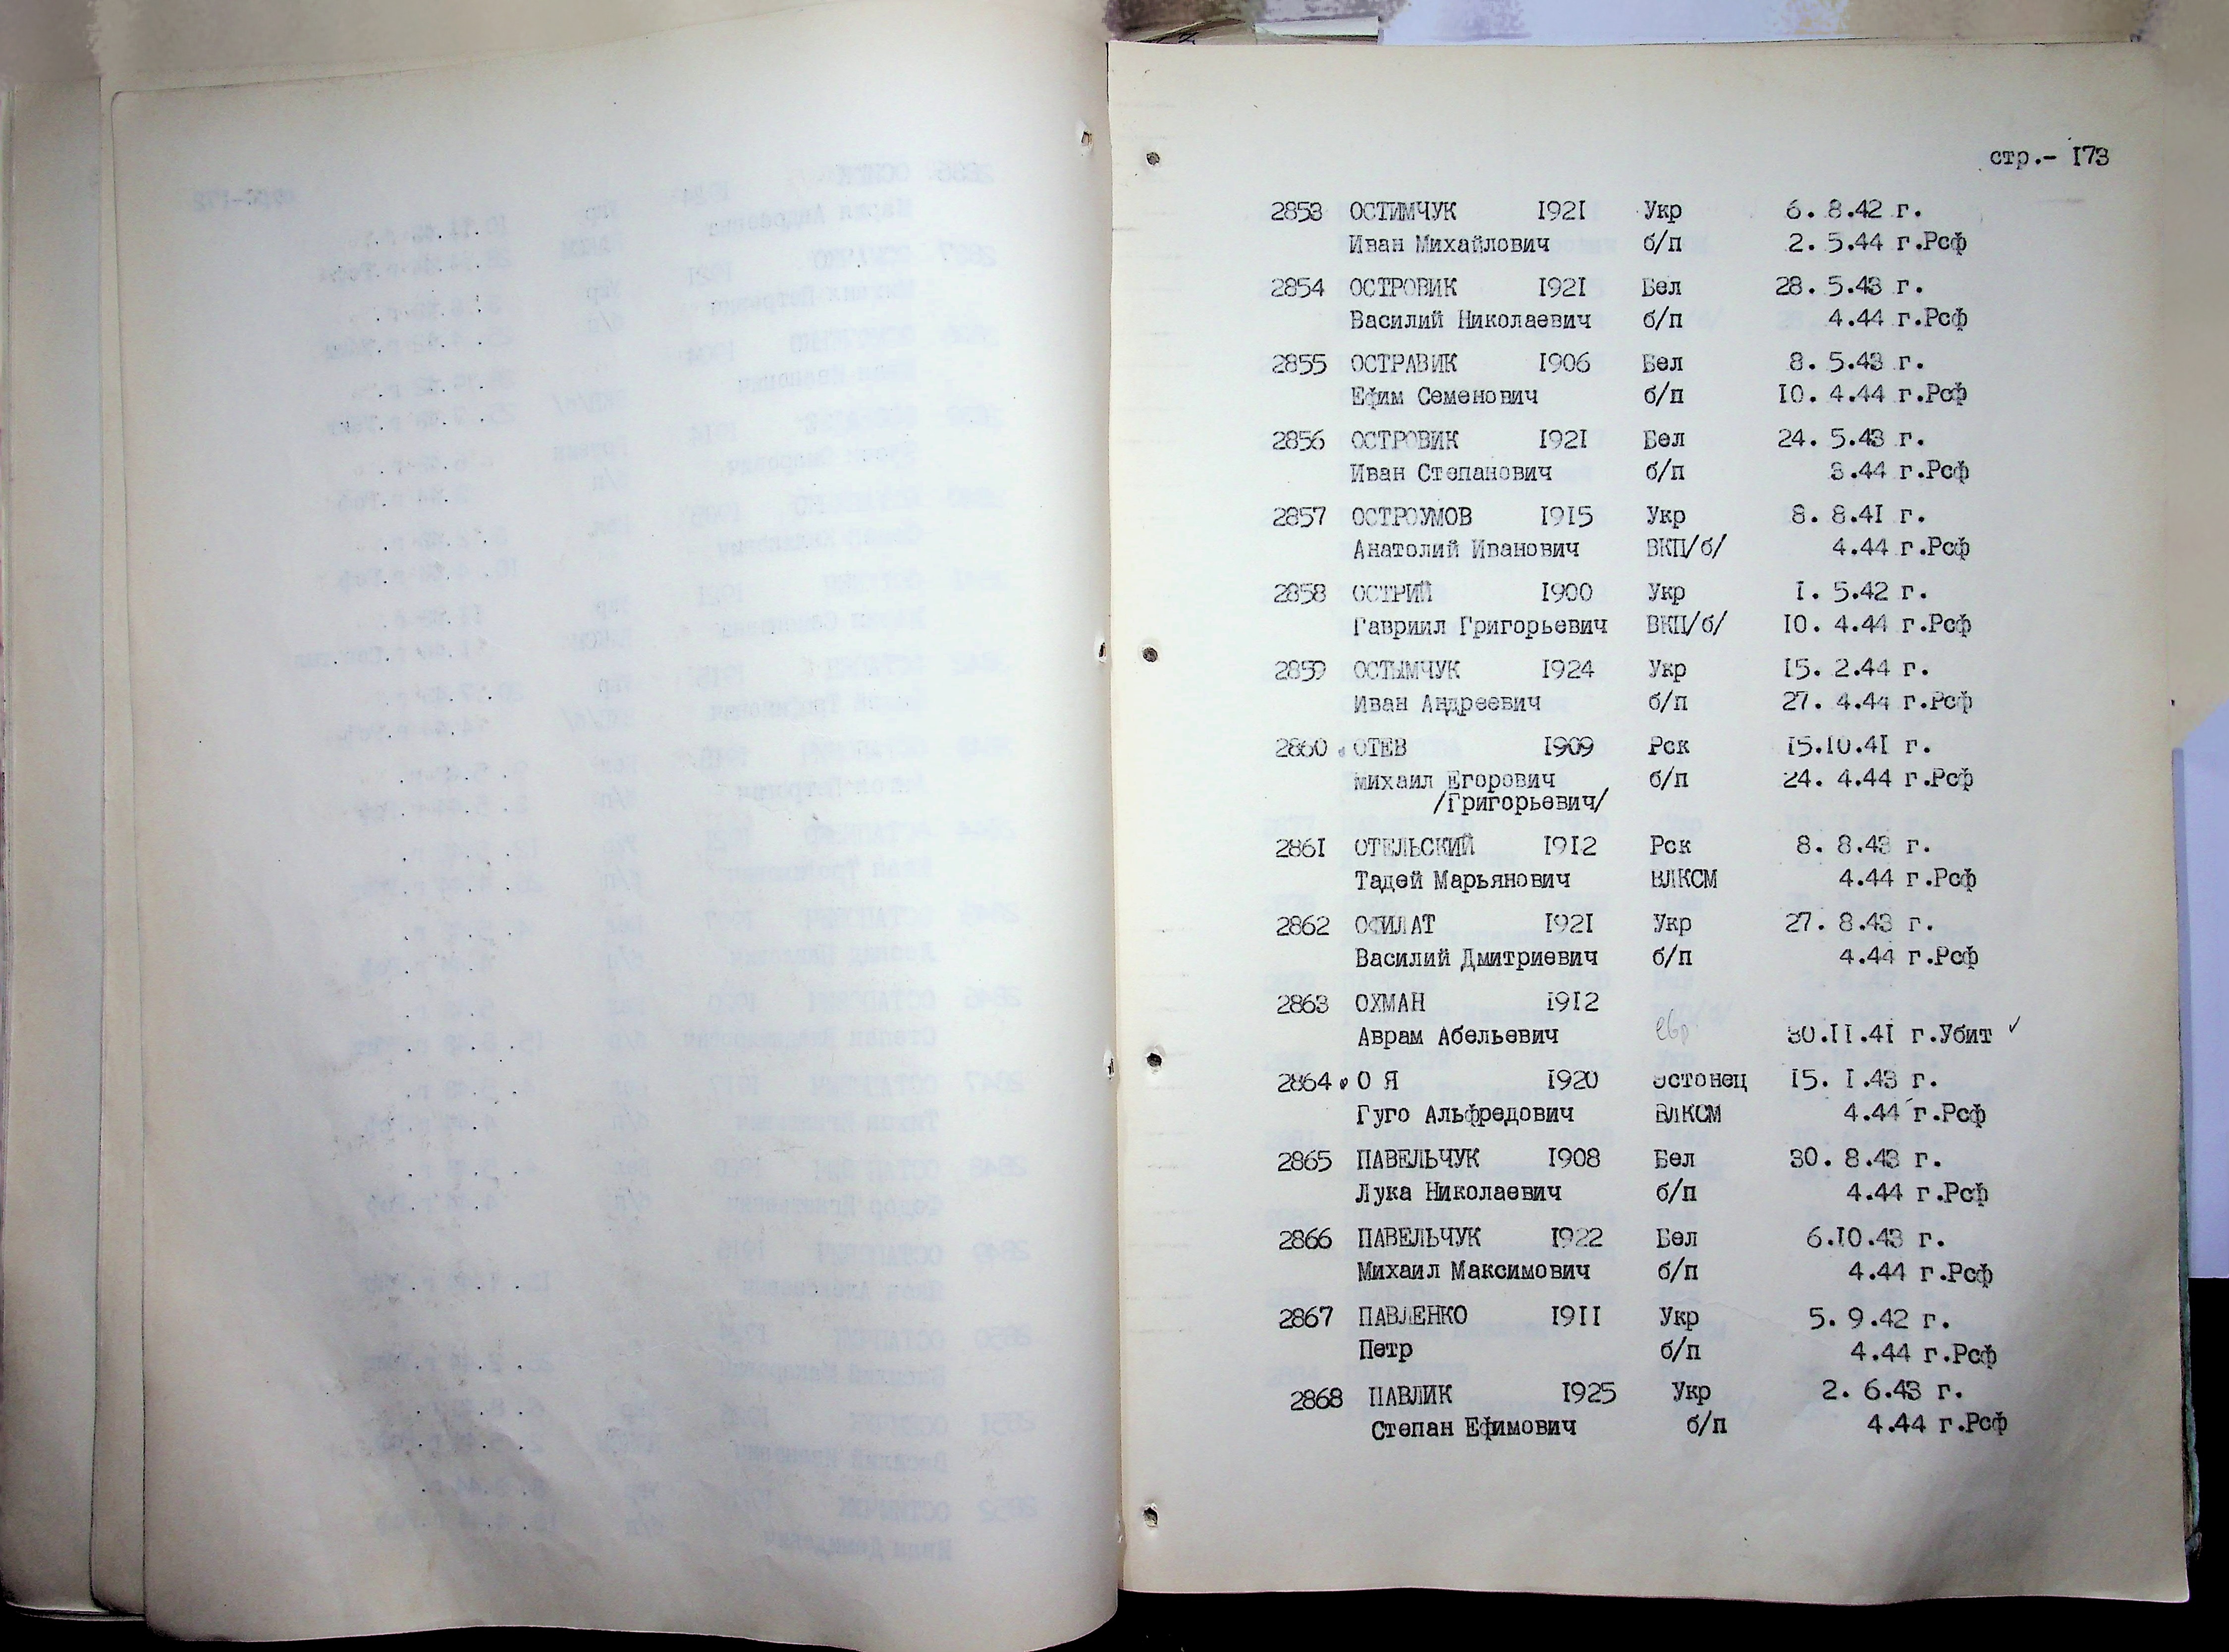 стр.- 173
2853 ОСТИМЧУК 1921 Укр 6. 8.42 г.
Иван Михайлович б/п 2. 5.44 г.Рсф
2854 ОСТРОВИК 1921 Бел 28. 5.43 г.
Василий Николаевич б/п 4.44 г.Рсф
2855 ОСТРАВИК 1906 Бел 8. 5.43 г.
Ефим Семенович б/п 10. 4.44 г.Рсф
2856 ОСТРОВИК 1921 Бел 24. 5.43 г.
Иван Степанович б/п 3.44 г.Рсф
2857 ОСТРОУМОВ 1915 Укр 8. 8.41 г.
Анатолий Иванович ВКП/б/ 4.44 г.Рсф
2858 ОСТРИЙ 1900 Укр 1. 5.42 г.
Гавриил Григорьевич ВКП/б/ 10. 4.44 г.Рсф
2859 ОСТЫМЧУК 1924 Укр 15. 2.44 г.
Иван Андреевич б/п 27. 4.44 г.Рсф
2860 ОТЕВ 1909 Рск 15.10.41 г.
Михаил Егорович б/п 24. 4.44 г.Рсф
/Григорьевич/
2861 ОТЕЛЬСКИЙ 1912 Рск 8. 8.43 г.
Тадей Марьянович ВЛКСМ 4.44 г.Рсф
2862 ОФИЛАТ 1921 Укр 27. 8.43 г.
Василий Дмитриевич б/п 4.44 г.Рсф
2863 ОХМАН 1912
Аврам Абельевич евр 30.11.41 г.Убит ✓
2864 О Я 1920 эстонец 15. 1.43 г.
Гуго Альфредович ВЛКСМ 4.44 г.Рсф
2865 ПАВЕЛЬЧУК 1908 Бел 30. 8.43 г.
Лука Николаевич б/п 4.44 г.Рсф
2866 ПАВЕЛЬЧУК 1922 Бел 6.10.43 г.
Михаил Максимович б/п 4.44 г.Рсф
2867 ПАВЛЕНКО 1911 Укр 5. 9.42 г.
Петр б/п 4.44 г.Рсф
2868 ПАВЛИК 1925 Укр 2. 6.43 г.
Степан Ефимович б/п 4.44 г.Рсф